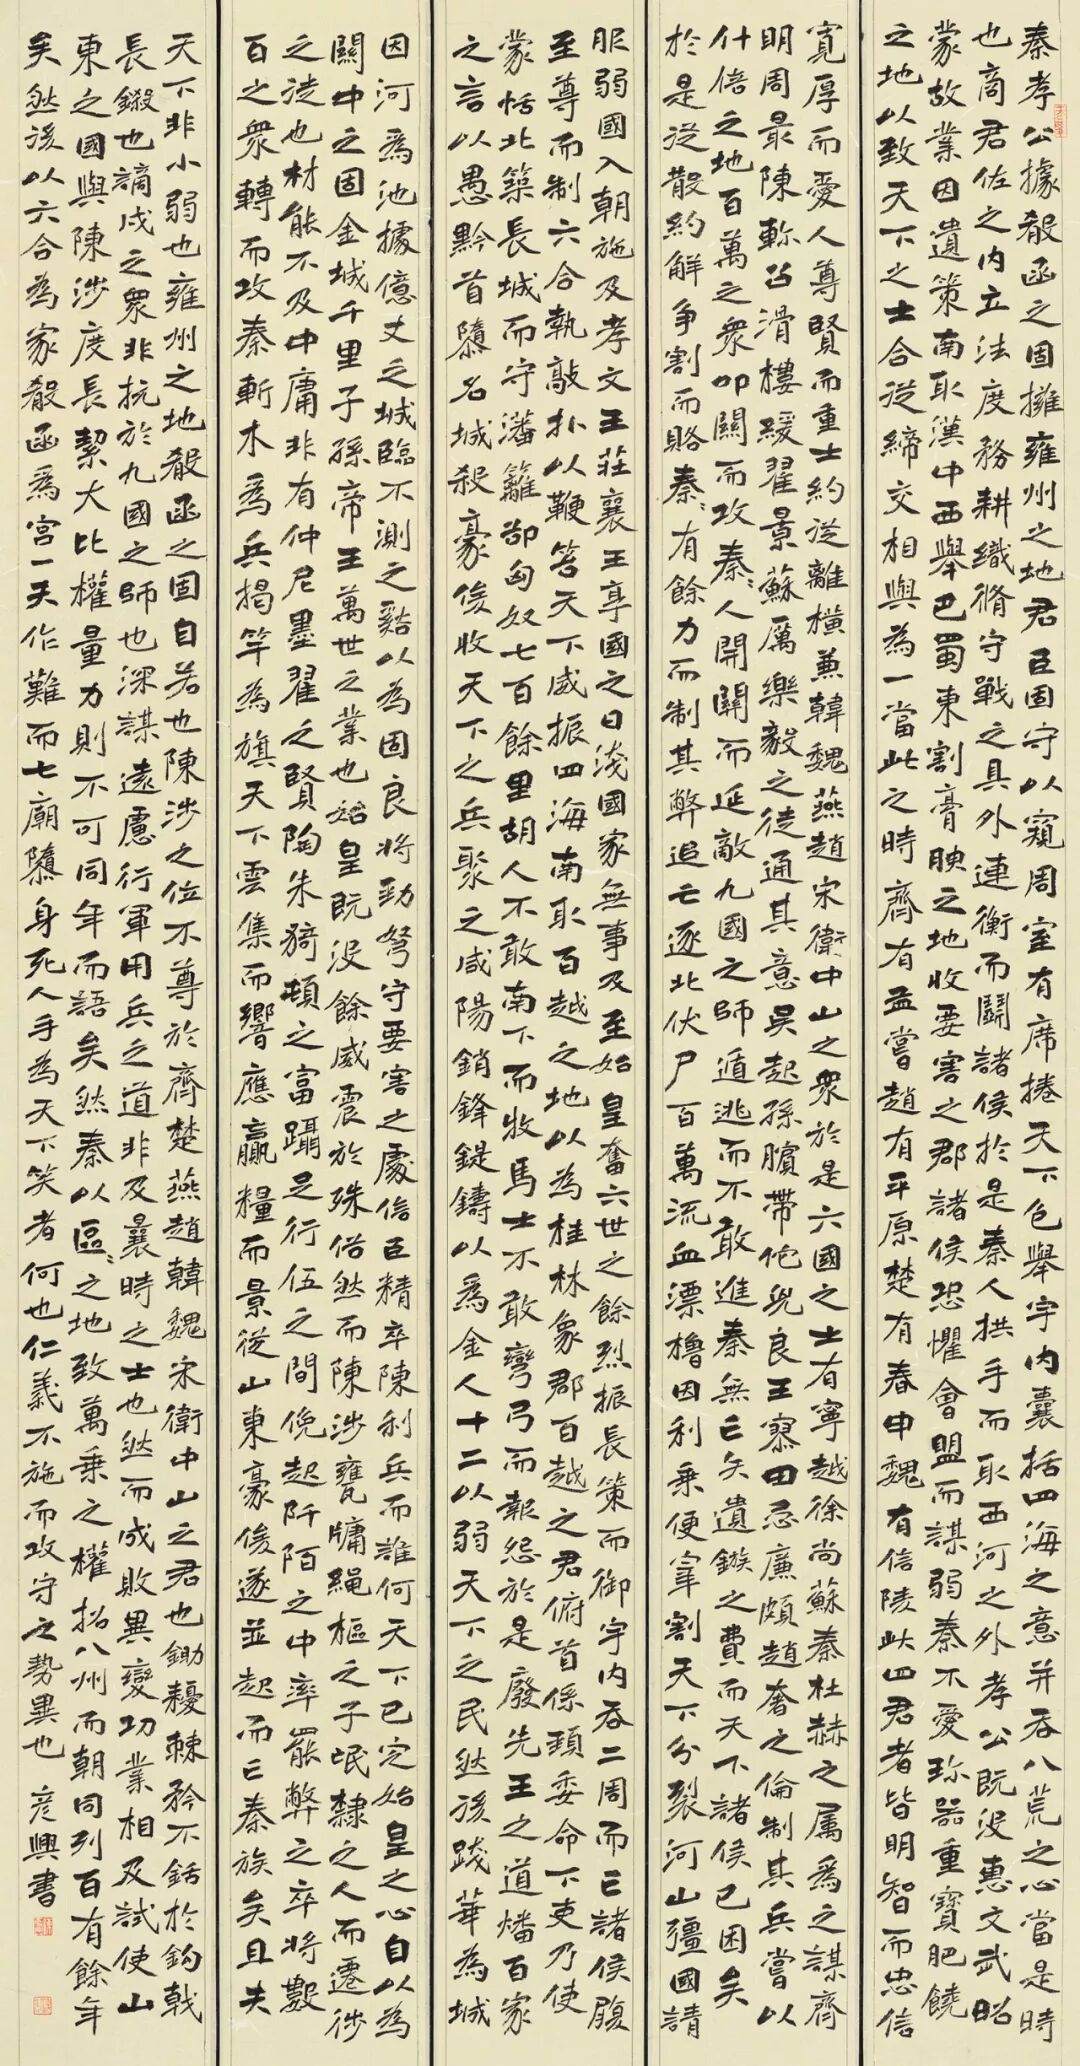 秦孝公據殽函之固擁雍州之地君臣固守以窺周室有席捲天下包舉宇內囊括四海之意并吞八荒之心當是時
也商君佐之內立法度務耕織脩守戰之具外連衡而鬬諸侯於是秦人拱手而取西河之外孝公既沒惠文武昭
蒙故業因遺策南取漢中西舉巴蜀東割膏腴之地收要害之郡諸侯恐懼會盟而謀弱秦不愛珍器重寶肥饒
之地以致天下之士合從締交相與為一當此之時齊有孟嘗趙有平原楚有春申魏有信陵此四君者皆明智而忠信
寬厚而愛人尊賢而重士約從離橫兼韓魏燕趙宋衛中山之眾於是六國之士有寧越徐尚蘇秦杜赫之屬為之謀齊
明周最陳軫召滑樓緩翟景蘇厲樂毅之徒通其意吳起孫臏帶佗兒良王廖田忌廉頗趙奢之倫制其兵嘗以
什倍之地百萬之眾叩關而攻秦〻人開關而延敵九國之師遁逃而不敢進秦無亡矢遺鏃之費而天下諸侯已困矣
於是從散約解爭割而賂秦〻有餘力而制其弊追亡逐北伏尸百萬流血漂櫓因利乘便宰割天下分裂河山彊國請
服弱國入朝施及孝文王莊襄王享國之日淺國家無事及至始皇奮六世之餘烈振長策而御宇內吞二周而亡諸侯履
至尊而制六合執敲扑以鞭笞天下威振四海南取百越之地以為桂林象郡百越之君俯首係頸委命下吏乃使
蒙恬北築長城而守藩籬卻匈奴七百餘里胡人不敢南下而牧馬士不敢彎弓而報怨於是廢先王之道燔百家
之言以愚黔首隳名城殺豪俊收天下之兵聚之咸陽銷鋒鍉鑄以為金人十二以弱天下之民然後踐華為城
因河為池據億丈之城臨不測之谿以為固良將勁弩守要害之處信臣精卒陳利兵而誰何天下已定始皇之心自以為
關中之固金城千里子孫帝王萬世之業也始皇既沒餘威震於殊俗然而陳涉甕牖繩樞之子氓隸之人而遷徙
之徒也材能不及中庸非有仲尼墨翟之賢陶朱猗頓之富躡足行伍之間俛起阡陌之中率罷弊之卒將數
百之眾轉而攻秦斬木為兵揭竿為旗天下雲集而響應贏糧而景從山東豪俊遂並起而亡秦族矣且夫
天下非小弱也雍州之地殽函之固自若也陳涉之位不尊於齊楚燕趙韓魏宋衛中山之君也鋤耰棘矜不銛於鈎戟
長鎩也謫戍之眾非抗於九國之師也深謀遠慮行軍用兵之道非及曩時之士也然而成敗異變功業相反試使山
東之國與陳涉度長絜大比權量力則不可同年而語矣然秦以區〻之地致萬乘之權招八州而朝同列百有餘年
矣然後以六合為家殽函為宮一夫作難而七廟隳身死人手為天下笑者何也仁義不施而攻守之勢異也 彥興書